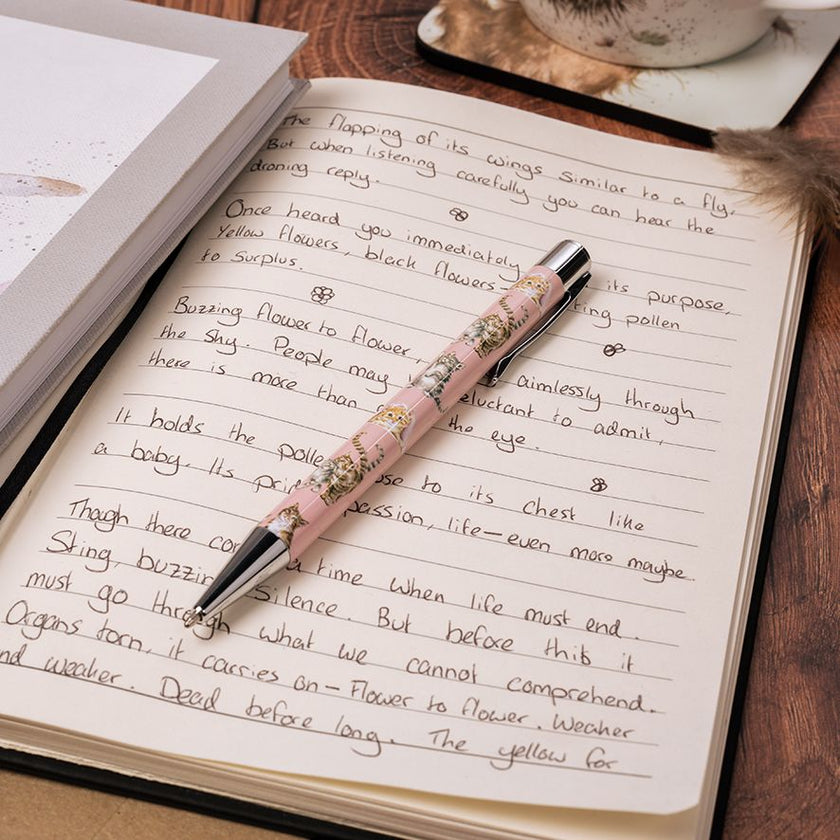 The flapping of its wings similar to a fly.
But when listening carefully you can hear the
droning reply.
Once heard you immediately its purpose,
Yellow flowers, black flowers- ting pollen
to surplus.
Buzzing flower to flower, aimlessly through
the sky. People may reluctant to admit,
there is more than the eye.
It holds the polle ose to its chest like
a baby. Its prid passion, life-even more maybe.
Though there co a time when life must end.
Sting, buzzin silence. But before this it
must go through what we cannot comprehend.
Organs torn, it carries on- Flower to flower. Weaker
nd weaker. Dead before long. The yellow for